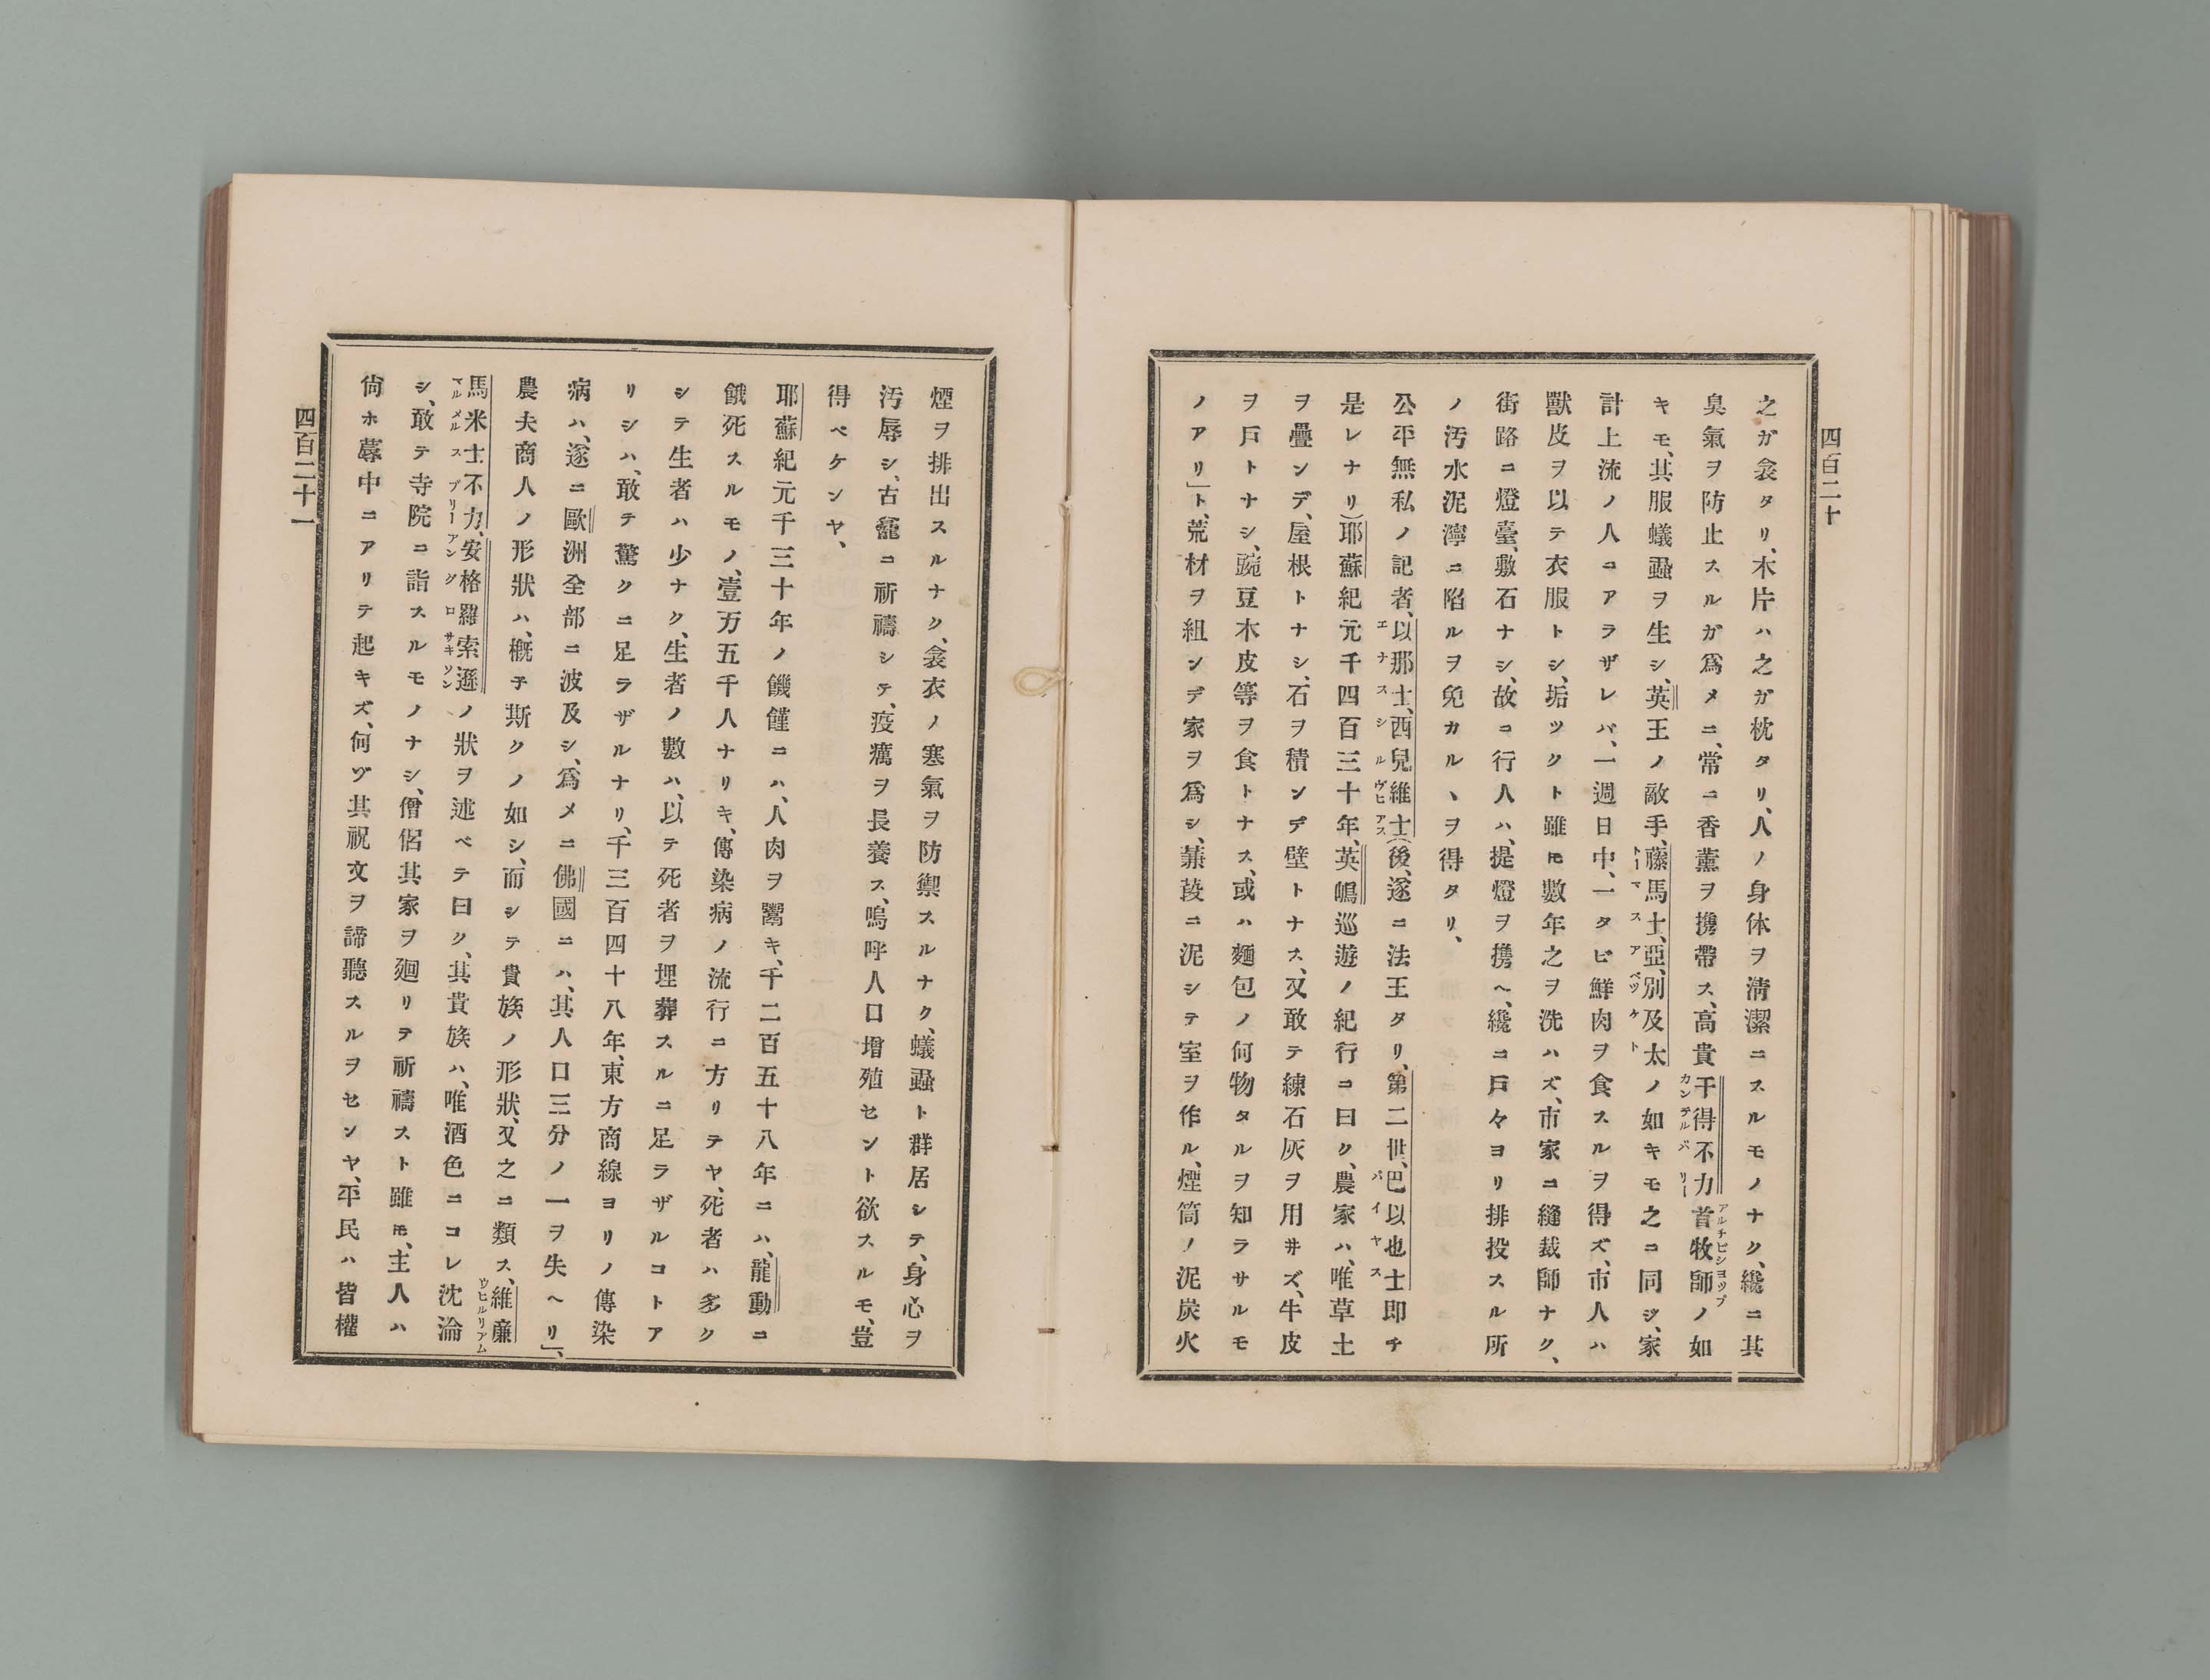 四百二十
之ガ衾タリ、木片ハ之ガ枕タリ、人ノ身体ヲ淸潔ニスルモノナク、纔ニ其
臭氣ヲ防止スルガ爲メニ、常ニ香薰ヲ携帶ス、高貴干得不力首牧師ノ如
キモ、其服蟻蝨ヲ生シ、英王ノ敵手、藤馬士、亞別及太ノ如キモ之ニ同ジ、家
計上流ノ人ニアラザレバ、一週日中、一タビ鮮肉ヲ食スルヲ得ズ、市人ハ
獸皮ヲ以テ衣服トシ、垢ツクト雖𪜈數年之ヲ洗ハズ、市家ニ縫裁師ナク、
街路ニ燈臺、敷石ナシ、故ニ行人ハ、提燈ヲ携ヘ、纔ニ戸々ヨリ排投スル所
ノ汚水泥濘ニ陷ルヲ免カルヽヲ得タリ、
公平無私ノ記者、以那士、西兒維士(後、遂ニ法王タリ、第二世、巴以也士即チ
是レナリ)耶蘇紀元千四百三十年、英嶋巡遊ノ紀行ニ曰ク、農家ハ、唯草土
ヲ疊ンデ、屋根トナシ、石ヲ積ンデ壁トナス、又敢テ練石灰ヲ用井ズ、牛皮
ヲ戸トナシ、豌豆木皮等ヲ食トナス、或ハ麵包ノ何物タルヲ知ラサルモ
ノアリ」ト、荒材ヲ組ンデ家ヲ爲シ、葉葭ニ泥シテ室ヲ作ル、煙筒ノ泥炭火
煙ヲ排出スルナク、衾衣ノ寒氣ヲ防禦スルナク、蟻蝨ト群居シテ、身心ヲ
汚辱シ、古龕ニ祈禱シテ、疫癘ヲ長養ス、嗚呼人口增殖セント欲スルモ、豈
得ベケンヤ、
耶蘇紀元千三十年ノ饑饉ニハ、人肉ヲ鬻キ、千二百五十八年ニハ、龍動ニ
餓死スルモノ、壹万五千人ナリキ、傳染病ノ流行ニ方リテヤ、死者ハ多ク
シテ生者ハ少ナク、生者ノ數ハ、以テ死者ヲ埋葬スルニ足ラザルコトア
リシハ、敢テ驚クニ足ラザルナリ、千三百四十八年、東方商線ヨリノ傳染
病ハ、遂ニ歐洲全部ニ波及シ、爲メニ佛國ニハ、其人口三分ノ一ヲ失ヘリ」、
農夫商人ノ形狀ハ、槪子斯クノ如シ、而シテ貴族ノ形狀、又之ニ類ス、維廉
馬米士不力、安格羅索遜ノ狀ヲ述ベテ曰ク、其貴族ハ、唯酒色ニコレ沈淪
シ、敢テ寺院ニ詣スルモノナシ、僧侶其家ヲ廻リテ祈禱スト雖𪜈、主人ハ
尙ホ蓐中ニアリテ起キズ、何ゾ其祝文ヲ諦聽スルヲセンヤ、平民ハ皆權
四百二十一